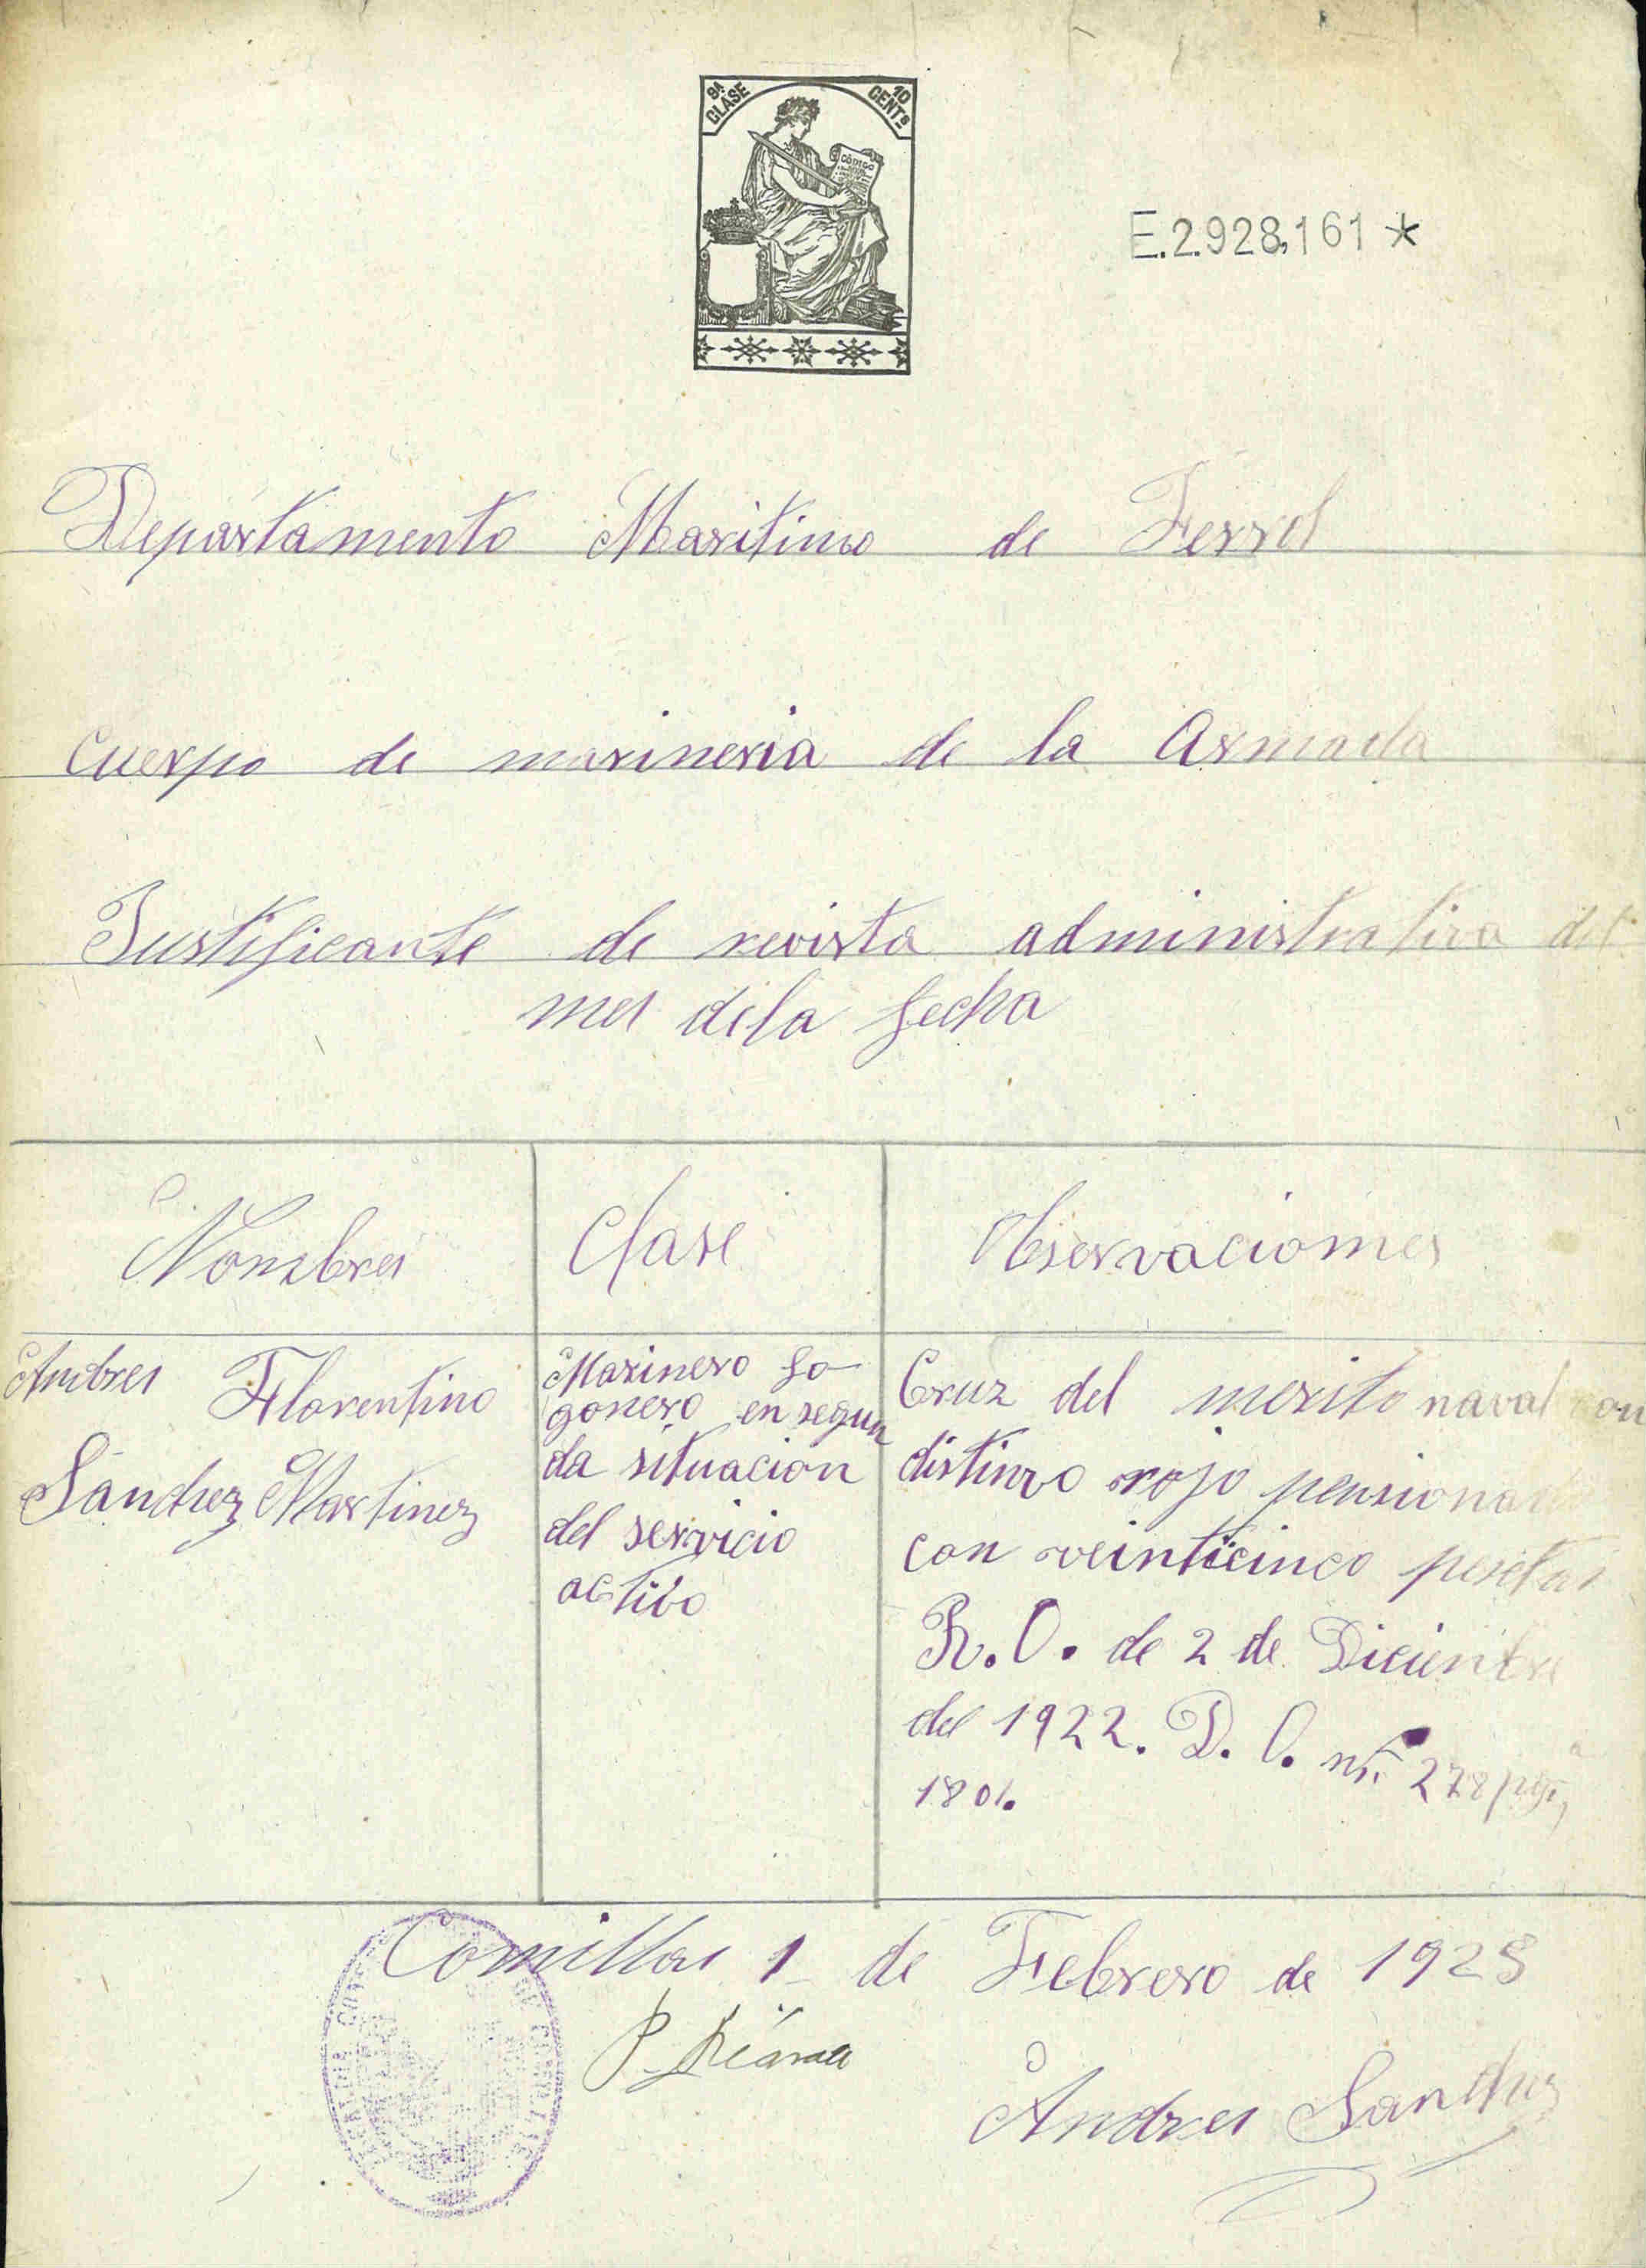 9ª CLASE
10 CENTs
CÓDIGO
E.2.928,161 *
Departamento Maritimo de Ferrol
Cuerpo de marineria de la Armada
Justificante de revista administrativa del
mes dela fecha
Nombres
Clase
Observaciomes
Andres Florentino
Sánchez Martinez
Marinero fo-
gonero en segun
da situacion
del servicio
activo
Cruz del merito naval con
distinvo rojo pensionada
con veinticinco pesetas
R.O. de 2 de Diciembre
del 1922. D. O. nº 278 pgª,
1801.
Comillas 1 de Febrero de 1928
Andres Sanchez